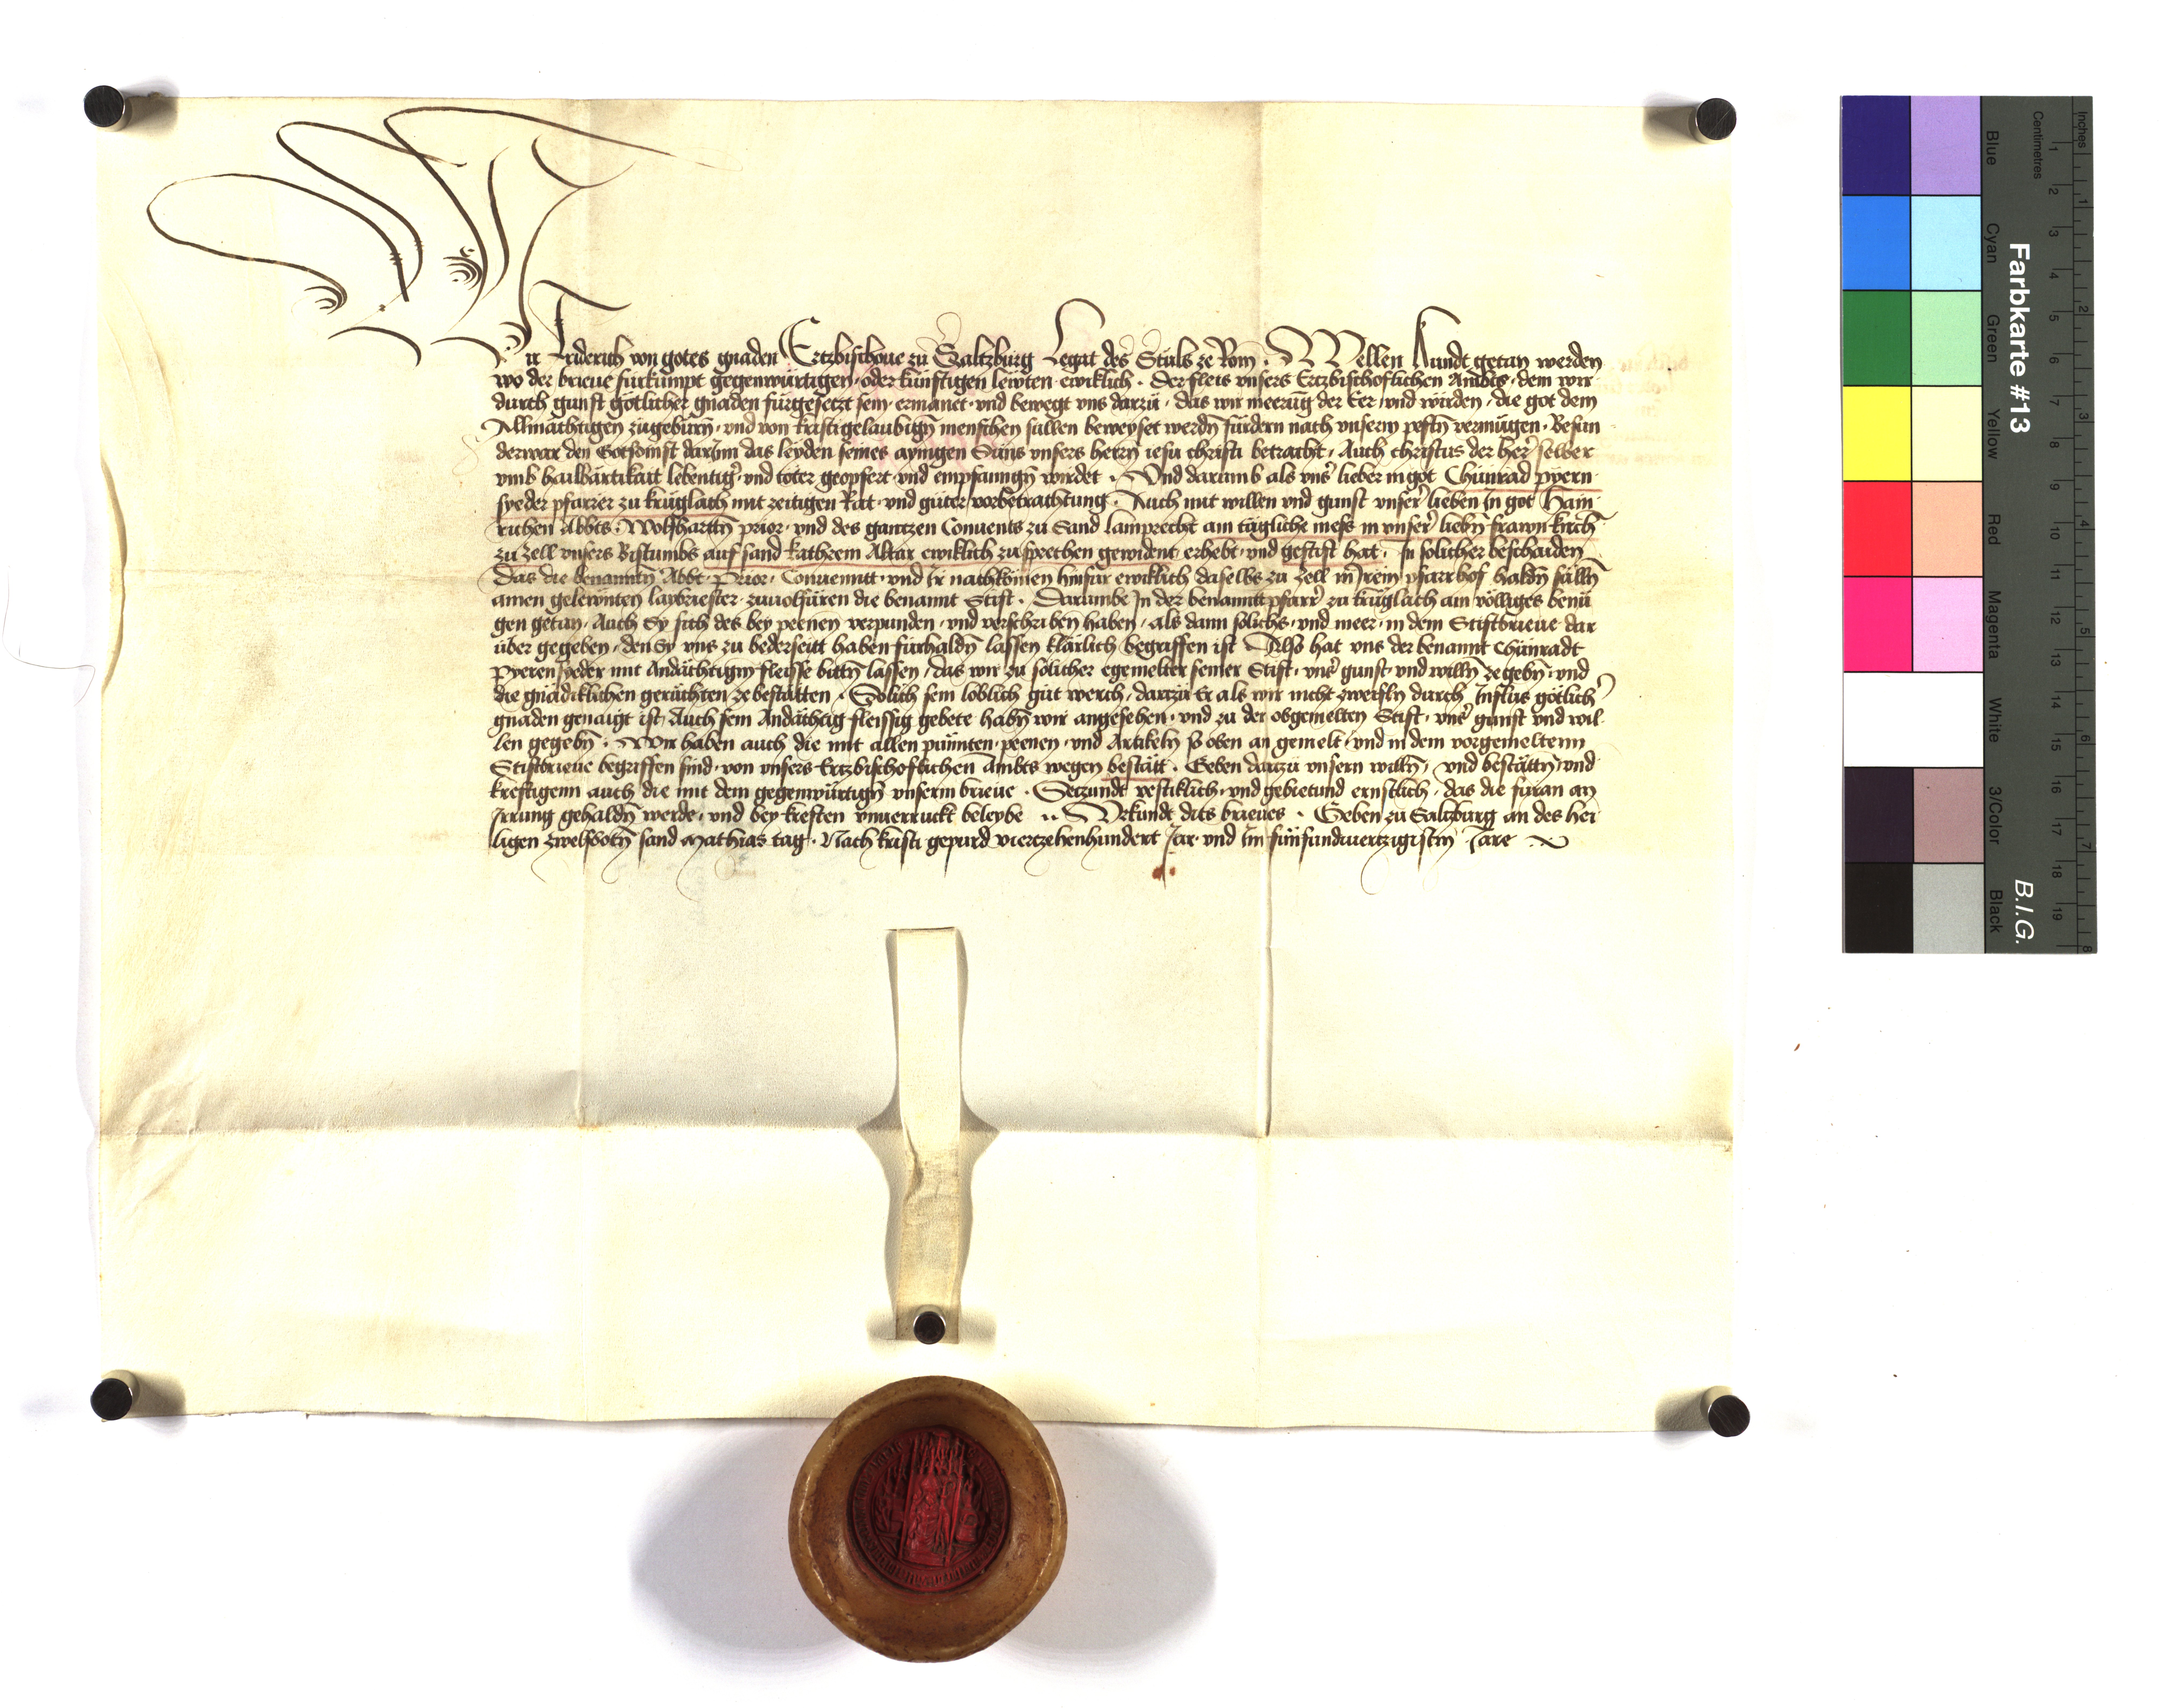 Wir Friderich von gotes gnaden Ertzbischoue zu Saltzburg Legat des Stuls ze Rom · Wellen kundt getan werden
wo der brieue fürkumpt gegenwürtigen · oder künftigen lewten ewiklich · Der fleis vnsers Ertzbischoflichen Ambts · dem wir
durch gunst götlicher gnaden fürgesetzt sein · ermanet · vnd bewegt vns darzü · das wir meerüg der Eer · vnd wirden · die got dem
Allmächtigen zugebürn · vnd von kristgelaubign menschen süllen beweyset werdn fürdern nach vnserm pestn vermügen · Besun
derwar den Gotsdinst darInn das leyden seines aynigen Süns vnsers herrn iesu christi betracht · Auch christus der herr selber
vmb hailbärtikait lebentiger · vnd toter geopfert · vnd empfanngn wirdet · Vnd darumb als vnser lieber in got Chünrad pyern
syeder pfarrer zu krüglach mit zeitigen Rat · vnd güter vorbetrachtung · Auch mit willen vnd gunst vnser lieben In got Hain
richen Abbts · Wolfhartn prior · vnd des gantzen Conuents zu Sand lamprecht ain tägliche mess in vnser liebn frawn kirchn
zu Zell vnsers Bistumbs auf sand kathrein Altar ewiklich zu sprechen gewident erhebt · vnd gestift hat · In solicher beschaiden
Das die benanntn Abbt · Prior · Conuennt · vnd Ir nachkomen hinfür ewiklich daselbs zu Zell in Irem pfarrhof haldn sülln
ainen gelewnten laybriester · zuuolfüren die benannt Stift · Darumbe In der benannt pfarrer zu krüglach ain völliges benü
gen getan · Auch Sy sich des bey peenen verpunden · vnd verschriben haben · als dann solichs · vnd meer · in dem Stiftbrieue dar
über gegeben · den Sy vns zu bederseitt haben fürhaldn lassen klärlich begriffen ist · Also hat vns der benannt Chünradt
Pyerensyeder mit Andächtigm fleisse bittn lassen · das wir zu solicher egemelter seiner Stift · vnser gunst · vnd willn ze gebn · vnd
die gnädiklichen gerüchten ze bestätten · Solich sein löblich güt werch · darzu Er als wir nicht zweifln durch Influs götlicher
gnaden genaigt ist · Auch sein Andächtig fleissig gebete habn wir angesehen · vnd zu der obgemelten Stift · vnser gunst vnd wil
len gegebn · Wir haben auch die mit allen punnten · peenen · vnd Artikeln so oben an gemelt · vnd in dem vorgemeltenn
Stiftbrieue begriffen sind · von vnsers Ertzbischoflichen Ambts wegen bestätt · Geben darzu vnsern willn · vnd bestättn · vnd
kreftigenn auch die mit dem gegenwürtign vnserm brieue · Setzundt vestiklich · vnd gebietund ernstlich · das die füran an
Irrung gehaldn werde · vnd bey kreften vnuerruckt beleybe ·· Vrkundt dits brieues · Geben zu Saltzburg an des hei
ligen zwelfbotn sand Mathias tag · Nach kristi gepurd viertzehenhundert Jar · vnd Im fünfundviertzigistm Jare
Farbkarte #13
B.I.G.
Inches
Centimetres
Blue
Cyan
Green
Yellow
Red
Magenta
White
3/Color
Black
1 2 3 4 5 6 7 8 9 10 11 12 13 14 15 16 17 18 19
1 2 3 4 5 6 7 8